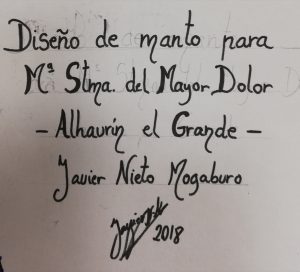 Diseño de manto para
Mª Stma. del Mayor Dolor
- Alhaurín el Grande -
Javier Nieto Mogaburo
2018